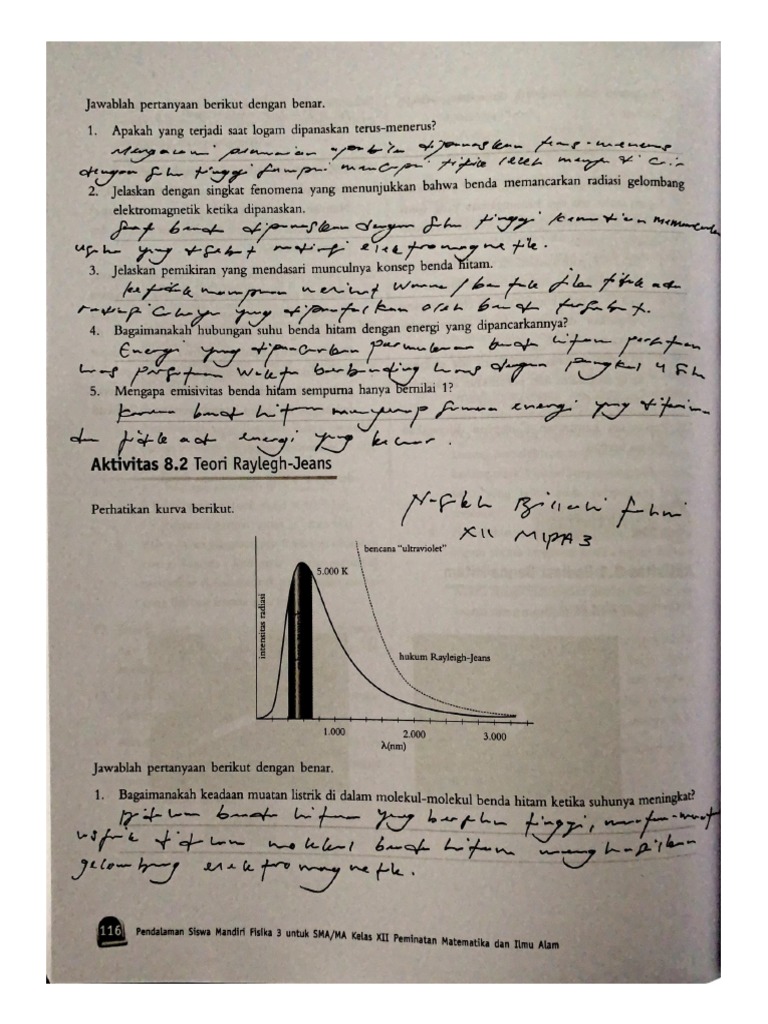 Jawablah pertanyaan berikut dengan benar.
1. Apakah yang terjadi saat logam dipanaskan terus-menerus?
Mengalami pemuaian apabila dipanaskan terus-menerus
dengan suhu tinggi sampai mencapai titik leleh
2. Jelaskan dengan singkat fenomena yang menunjukkan bahwa benda memancarkan radiasi gelombang
elektromagnetik ketika dipanaskan.
Saat benda dipanaskan dengan suhu tinggi kemudian
yang elektromagnetik.
3. Jelaskan pemikiran yang mendasari munculnya konsep benda hitam.
warna / bentuk
cahaya yang dipantulkan oleh benda tersebut.
4. Bagaimanakah hubungan suhu benda hitam dengan energi yang dipancarkannya?
Energi yang dipancarkan permukaan benda hitam persatuan
luas persatuan waktu berbanding lurus dengan pangkat 4 suhu
5. Mengapa emisivitas benda hitam sempurna hanya bernilai 1?
Karena benda hitam menyerap semua energi yang diterima
dan tidak ada energi yang keluar.
Aktivitas 8.2 Teori Raylegh-Jeans
Perhatikan kurva berikut.
XII MIPA 3
bencana "ultraviolet"
5.000 K
intensitas radiasi
hukum Rayleigh-Jeans
1.000 2.000 3.000
λ(nm)
Jawablah pertanyaan berikut dengan benar.
1. Bagaimanakah keadaan muatan listrik di dalam molekul-molekul benda hitam ketika suhunya meningkat?
Didalam benda hitam yang bersuhu tinggi, muatan-muatan
listrik didalam molekul benda hitam menghasilkan
gelombang elektromagnetik.
116 Pendalaman Siswa Mandiri Fisika 3 untuk SMA/MA Kelas XII Peminatan Matematika dan Ilmu Alam